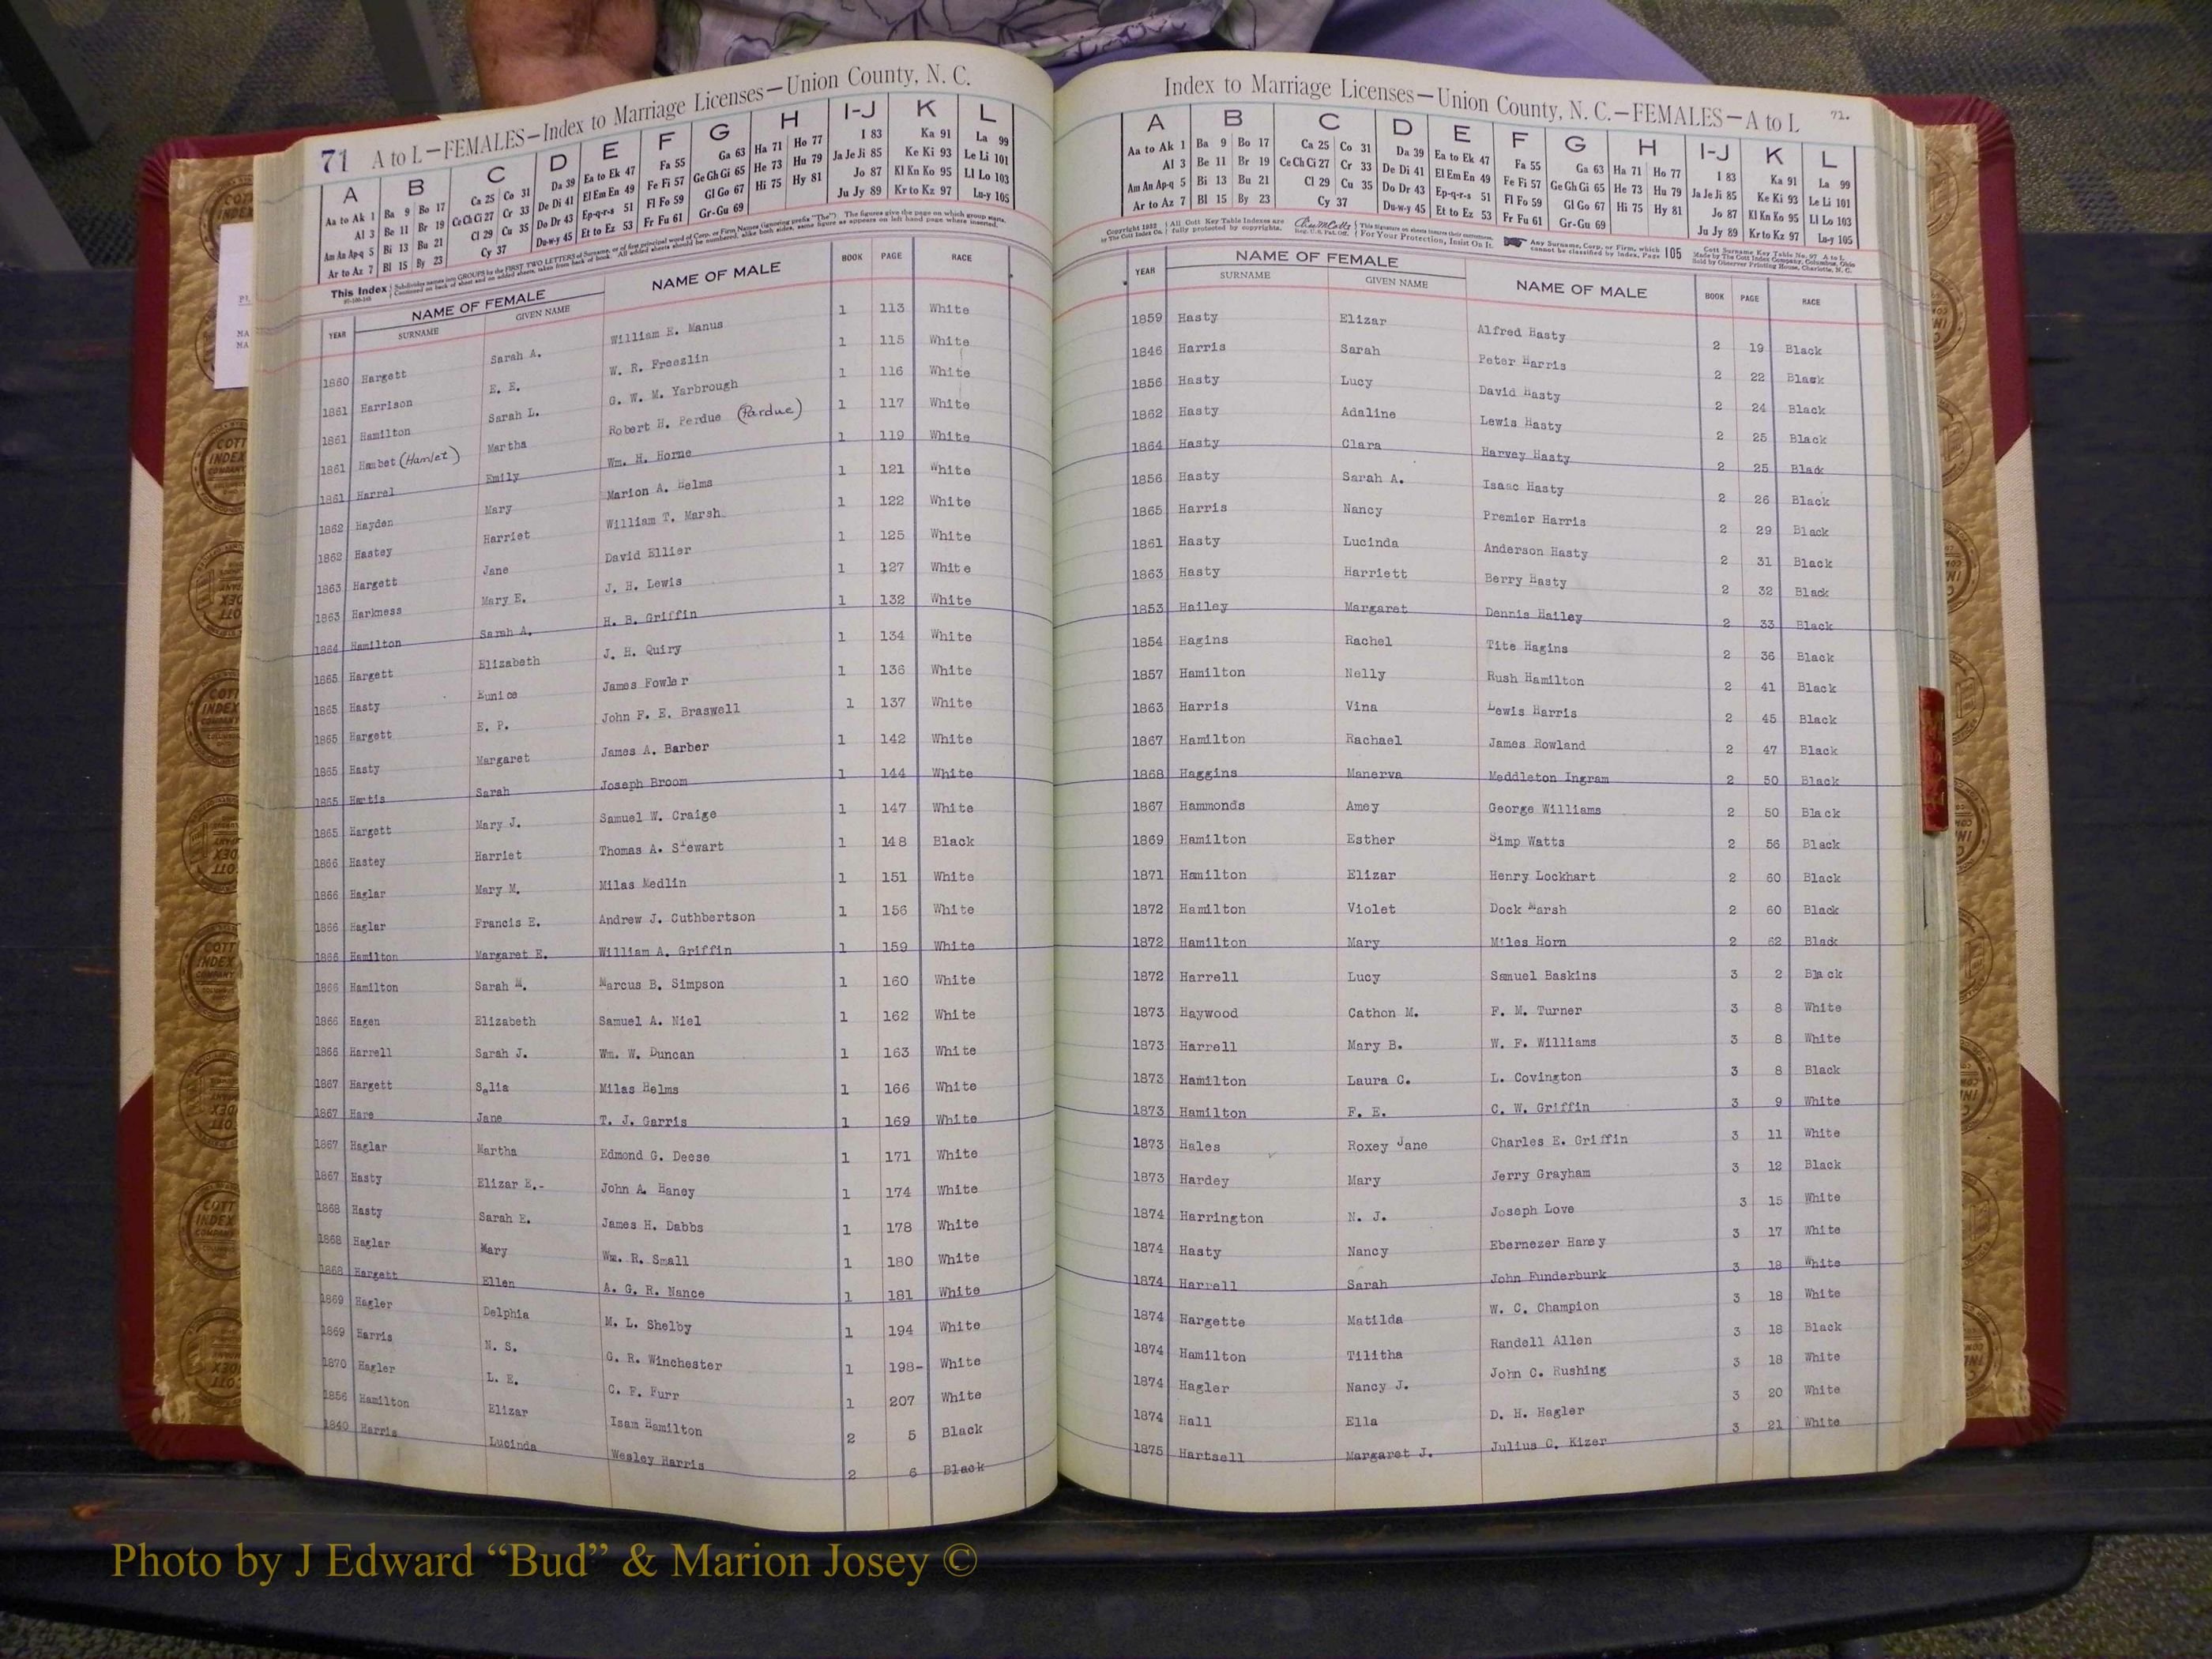 71 A to L—FEMALES—Index to Marriage Licenses—Union County, N. C.
A B C D E F G H I-J K L
Aa to Ak 1 Ba 9 Bo 17 Ca 25 Co 31 Da 39 Ea to Ek 47 Fa 55 Ga 63 Ha 71 Ho 77 I 83 Ka 91 La 99
Al 3 Be 11 Br 19 Ce Ch Ci 27 Cr 33 De Di 41 El Em En 49 Fe Fi 57 Ge Gh Gi 65 He 73 Hu 79 Ja Je Ji 85 Ke Ki 93 Le Li 101
Am An Ap-q 5 Bi 13 Bu 21 Cl 29 Cu 35 Do Dr 43 Ep-q-r-s 51 Fl Fo 59 Gl Go 67 Hi 75 Hy 81 Jo 87 Kl Kn Ko 95 Ll Lo 103
Ar to Az 7 Bl 15 By 23 Cy 37 Du-w-y 45 Et to Ez 53 Fr Fu 61 Gr-Gu 69 Ju Jy 89 Kr to Kz 97 Lu-y 105
YEAR NAME OF FEMALE SURNAME GIVEN NAME NAME OF MALE BOOK PAGE RACE
1860 Hargett Sarah A. William E. Manus 1 113 White
1861 Harrison E. E. W. R. Freezlin 1 115 White
1861 Hamilton Sarah L. G. W. M. Yarbrough 1 116 White
1861 Hambet (Hamlet) Martha Robert H. Perdue (Pardue) 1 117 White
1861 Harrel Emily Wm. H. Horne 1 119 White
1862 Hayden Mary Marion A. Helms 1 121 White
1862 Hastey Harriet William T. Marsh 1 122 White
1863 Hargett Jane David Ellier 1 125 White
1863 Harkness Mary E. J. H. Lewis 1 127 White
1864 Hamilton Sarah A. H. B. Griffin 1 132 White
1865 Hargett Elizabeth J. H. Quiry 1 134 White
1865 Hasty Eunice James Fowler 1 136 White
1865 Hargett E. P. John F. E. Braswell 1 137 White
1865 Hasty Margaret James A. Barber 1 142 White
1865 Hartis Sarah Joseph Broom 1 144 White
1865 Hargett Mary J. Samuel W. Craige 1 147 White
1866 Hastey Harriet Thomas A. Stewart 1 148 Black
1866 Haglar Mary M. Milas Medlin 1 151 White
1866 Haglar Francis E. Andrew J. Cuthbertson 1 156 White
1866 Hamilton Margaret E. William A. Griffin 1 159 White
1866 Hamilton Sarah M. Marcus B. Simpson 1 160 White
1866 Hagen Elizabeth Samuel A. Niel 1 162 White
1866 Harrell Sarah J. Wm. W. Duncan 1 163 White
1867 Hargett Salia Milas Helms 1 166 White
1867 Hare Jane T. J. Garris 1 169 White
1867 Haglar Martha Edmond G. Deese 1 171 White
1867 Hasty Elizar E.- John A. Haney 1 174 White
1868 Hasty Sarah E. James H. Dabbs 1 178 White
1868 Haglar Mary Wm. R. Small 1 180 White
1868 Hargett Ellen A. G. R. Nance 1 181 White
1869 Hagler Delphia M. L. Shelby 1 194 White
1869 Harris N. S. G. R. Winchester 1 198- White
1870 Hagler L. E. C. F. Furr 1 207 White
1856 Hamilton Elizar Isam Hamilton 2 5 Black
1840 Harris Lucinda Wesley Harris 2 6 Black
Index to Marriage Licenses—Union County, N. C.—FEMALES—A to L 71.
A B C D E F G H I-J K L
Aa to Ak 1 Ba 9 Bo 17 Ca 25 Co 31 Da 39 Ea to Ek 47 Fa 55 Ga 63 Ha 71 Ho 77 I 83 Ka 91 La 99
Al 3 Be 11 Br 19 Ce Ch Ci 27 Cr 33 De Di 41 El Em En 49 Fe Fi 57 Ge Gh Gi 65 He 73 Hu 79 Ja Je Ji 85 Ke Ki 93 Le Li 101
Am An Ap-q 5 Bi 13 Bu 21 Cl 29 Cu 35 Do Dr 43 Ep-q-r-s 51 Fl Fo 59 Gl Go 67 Hi 75 Hy 81 Jo 87 Kl Kn Ko 95 Ll Lo 103
Ar to Az 7 Bl 15 By 23 Cy 37 Du-w-y 45 Et to Ez 53 Fr Fu 61 Gr-Gu 69 Ju Jy 89 Kr to Kz 97 Lu-y 105
YEAR NAME OF FEMALE SURNAME GIVEN NAME NAME OF MALE BOOK PAGE RACE
1859 Hasty Elizar Alfred Hasty 2 19 Black
1846 Harris Sarah Peter Harris 2 22 Black
1856 Hasty Lucy David Hasty 2 24 Black
1862 Hasty Adaline Lewis Hasty 2 25 Black
1864 Hasty Clara Harvey Hasty 2 25 Black
1856 Hasty Sarah A. Isaac Hasty 2 26 Black
1865 Harris Nancy Premier Harris 2 29 Black
1861 Hasty Lucinda Anderson Hasty 2 31 Black
1863 Hasty Harriett Berry Hasty 2 32 Black
1853 Hailey Margaret Dennis Hailey 2 33 Black
1854 Hagins Rachel Tite Hagins 2 36 Black
1857 Hamilton Nelly Rush Hamilton 2 41 Black
1863 Harris Vina Lewis Harris 2 45 Black
1867 Hamilton Rachael James Rowland 2 47 Black
1868 Haggins Manerva Meddleton Ingram 2 50 Black
1867 Hammonds Amey George Williams 2 50 Black
1869 Hamilton Esther Simp Watts 2 56 Black
1871 Hamilton Elizar Henry Lockhart 2 60 Black
1872 Hamilton Violet Dock Marsh 2 60 Black
1872 Hamilton Mary Miles Horn 2 62 Black
1872 Harrell Lucy Samuel Baskins 3 2 Black
1873 Haywood Cathon M. F. M. Turner 3 8 White
1873 Harrell Mary B. W. F. Williams 3 8 White
1873 Hamilton Laura C. L. Covington 3 8 Black
1873 Hamilton F. E. C. W. Griffin 3 9 White
1873 Hales Roxey Jane Charles E. Griffin 3 11 White
1873 Hardey Mary Jerry Grayham 3 12 Black
1874 Harrington N. J. Joseph Love 3 15 White
1874 Hasty Nancy Ebernezer Haney 3 17 White
1874 Harrell Sarah John Funderburk 3 18 White
1874 Hargette Matilda W. C. Champion 3 18 White
1874 Hamilton Tilitha Randell Allen 3 18 Black
1874 Hagler Nancy J. John C. Rushing 3 18 White
1874 Hall Ella D. H. Hagler 3 20 White
1875 Hartsell Margaret J. Julius C. Kizer 3 21 White
Photo by J Edward “Bud” & Marion Josey ©